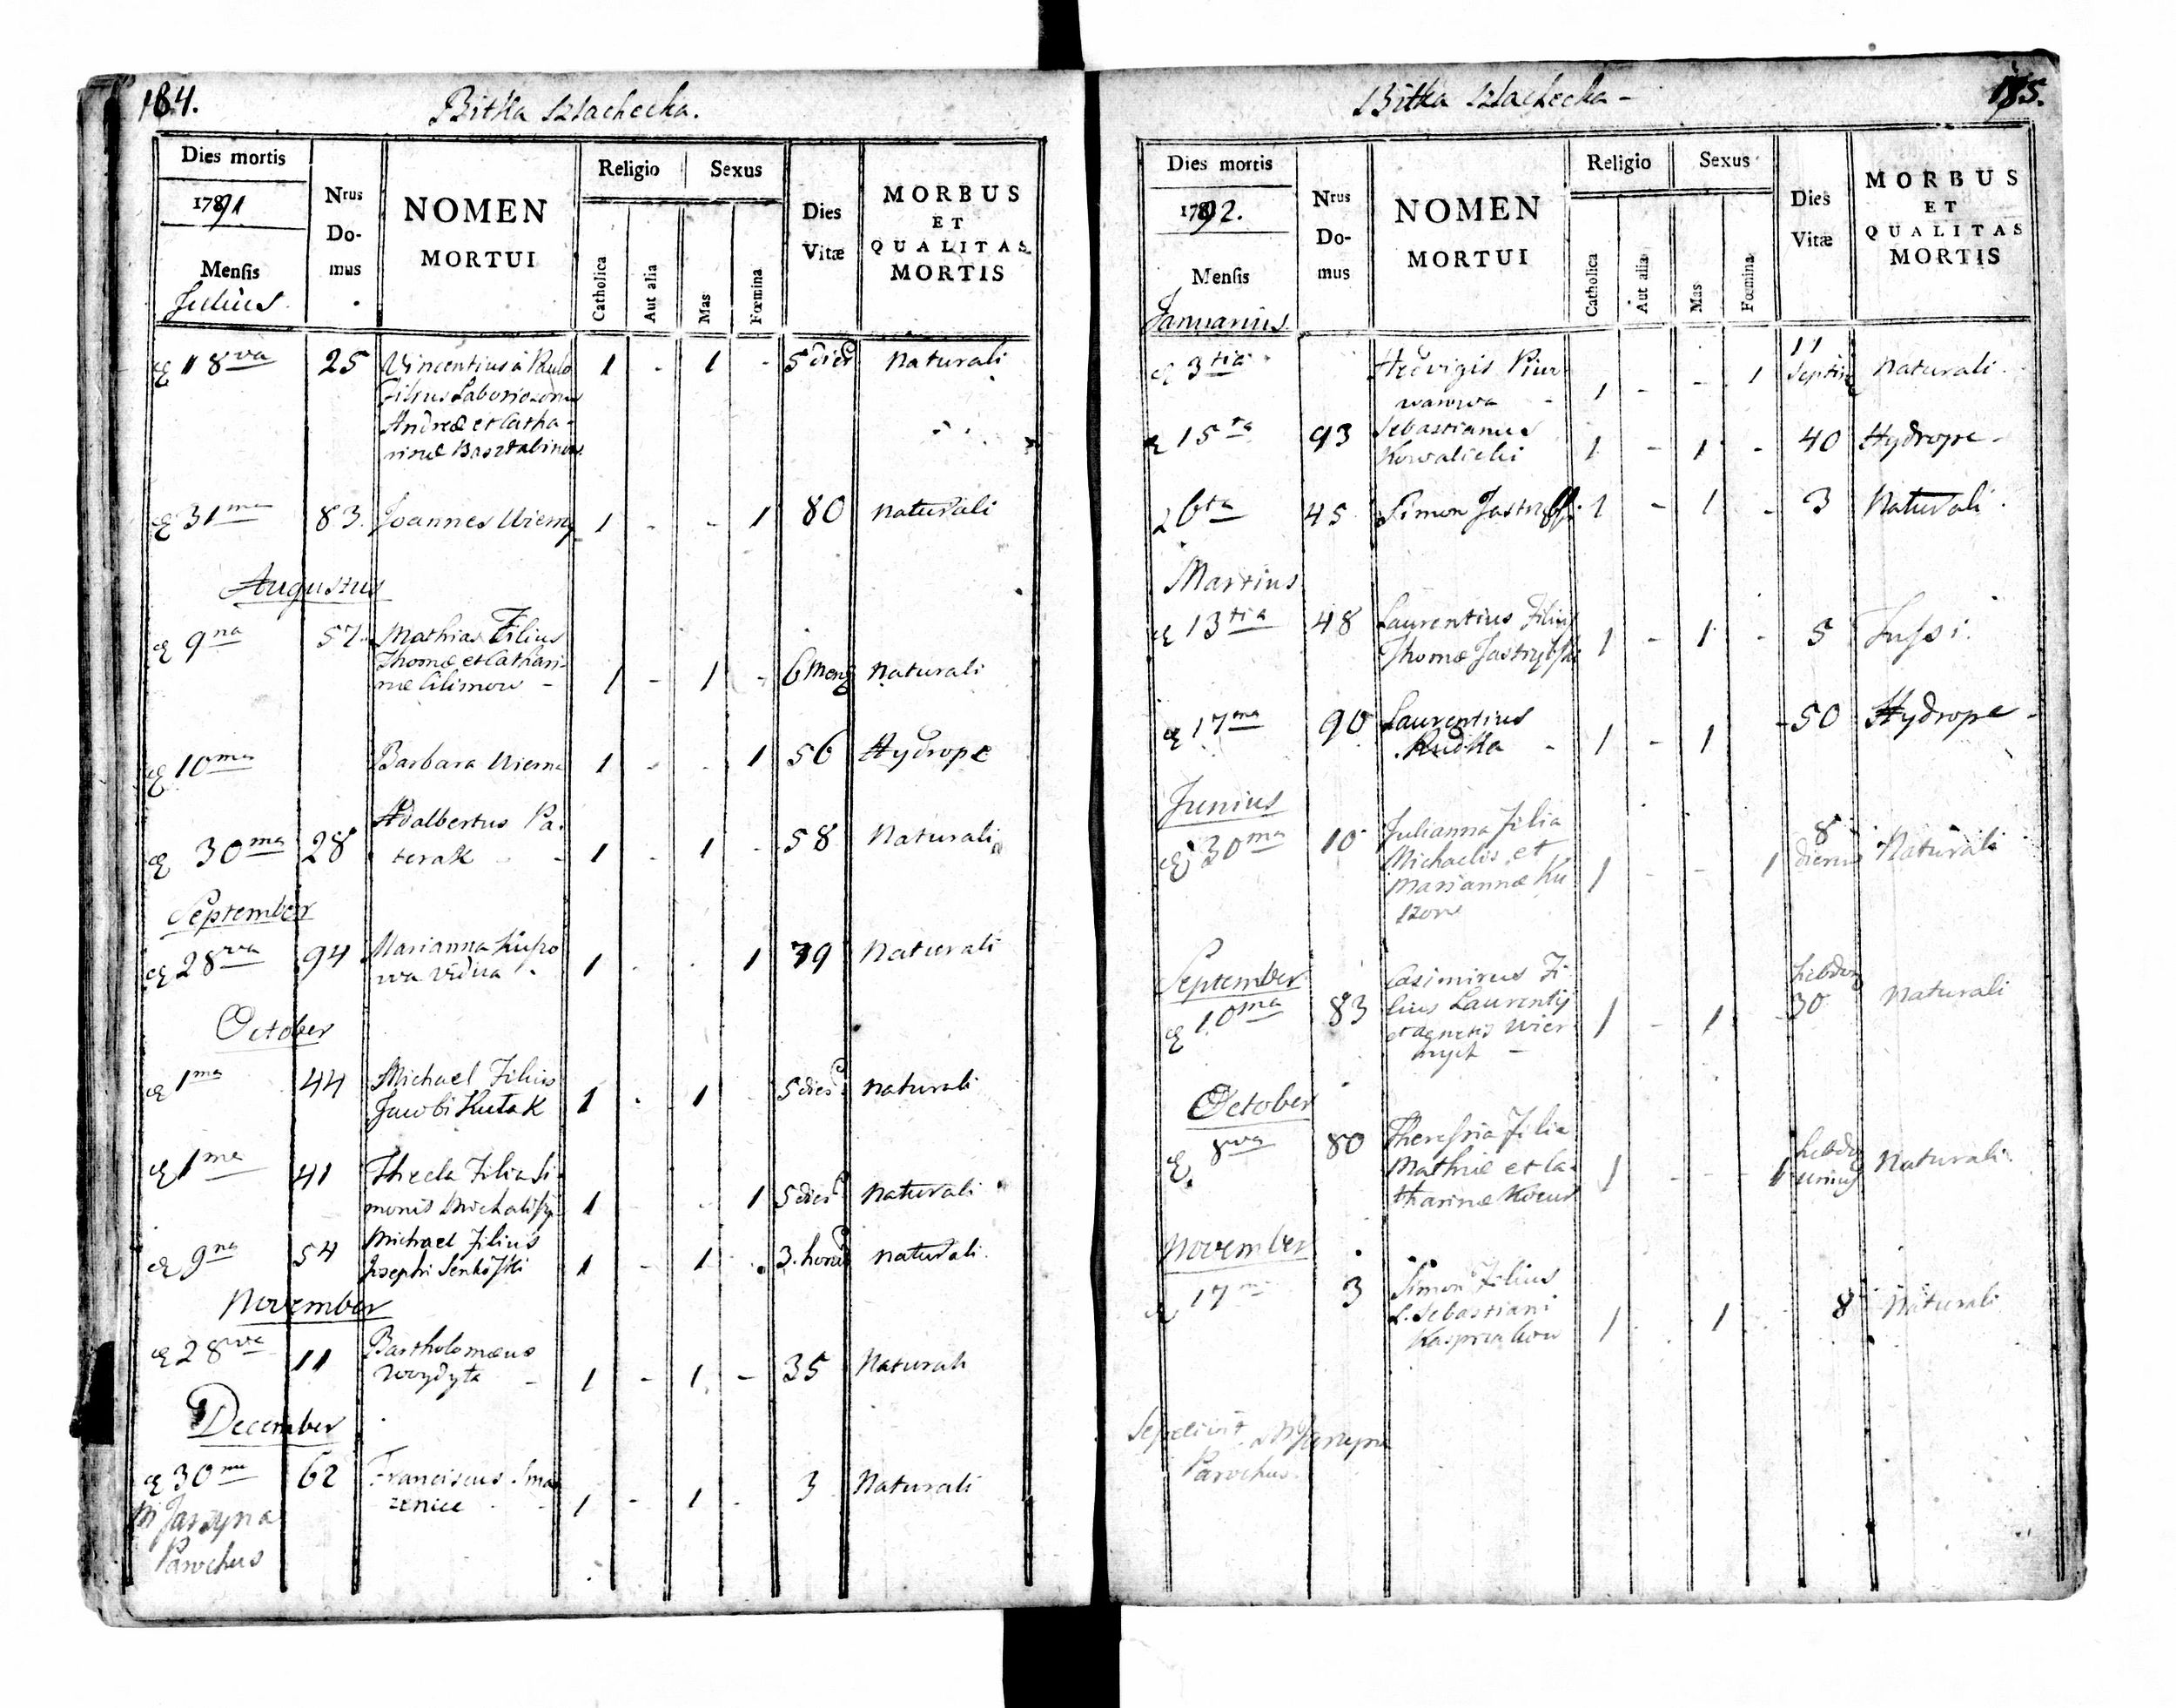 184.
Bitka Szlachecka.
Dies mortis
1791
Mensis
Julius
Nrus
Do-
mus
NOMEN
MORTUI
Religio
Catholica
Aut alia
Sexus
Mas
Fœmina
Dies
Vitæ
MORBUS
ET
QUALITAS
MORTIS
18va 25 Vincentius à Paulo 1 - 1 - 5 dier Naturali
Filius Laboriosorum
Andreæ et Catha-
rinæ
31ma 83. Joannes 1 - - 1 80 naturali
Augustus
9na 57. Mathias Filius
Thomæ et Cathari-
næ Climow - 1 - 1 - 6 Mens naturali
10ma Barbara 1 - - 1 56 Hydrope
30ma 28 Adalbertus Pa-
terak - 1 - 1 - 58 Naturali
September
28va 94 Marianna
wa vidua 1 - - 1 39 Naturali
October
1ma 44 Michael Filius
Jacobi Kutak 1 - 1 5 dier naturali
1ma 41 Thecla Filia Si-
monis 1 - - 1 5 dier naturali
9na 54 Michael Filius
Josephi 1 - 1 - 3. horar naturali.
November
28va 11 Bartholomæus
Woydyta - 1 - 1 - 35 Naturali
December
30ma 62 Franciscus
1 - 1 - 3 Naturali
M Jarzyna
Parochus
185.
Bitka Szlachecka -
Dies mortis
1792.
Mensis
Januarius
Nrus
Do-
mus
NOMEN
MORTUI
Religio
Catholica
Aut alia
Sexus
Mas
Fœmina
Dies
Vitæ
MORBUS
ET
QUALITAS
MORTIS
3tia Hedvigis 1 - - 1 11 Naturali.
15ta 93 Sebastianus
1 - 1 - 40 Hydrope -
26ta 45 Simon 1 - 1 - 3 Naturali.
Martius
13tia 48 Laurentius Filius
Thomæ 1 - 1 - 5 Tussi.
17ma 90 Laurentius
Rudka - 1 - 1 - 50 Hydrope -
Junius
30ma 10 Julianna Filia
Michaelis et
Mariannæ Ku
szow 1 - - 1 8 dierum Naturali
September
10ma 83 Casimirus Fi-
lius Laurentij
et Agnetis Wier
nych - 1 - 1 - hebdom 30 Naturali
October
8va 80 Theressia Filia
Mathiæ et Ca-
tharinæ 1 - - 1 hebdom unius Naturali.
November
17ma 3 Simon Filius
L. Sebastiani
1 - 1 - 8 Naturali
Sepelivit M Jarzyna
Parochus.